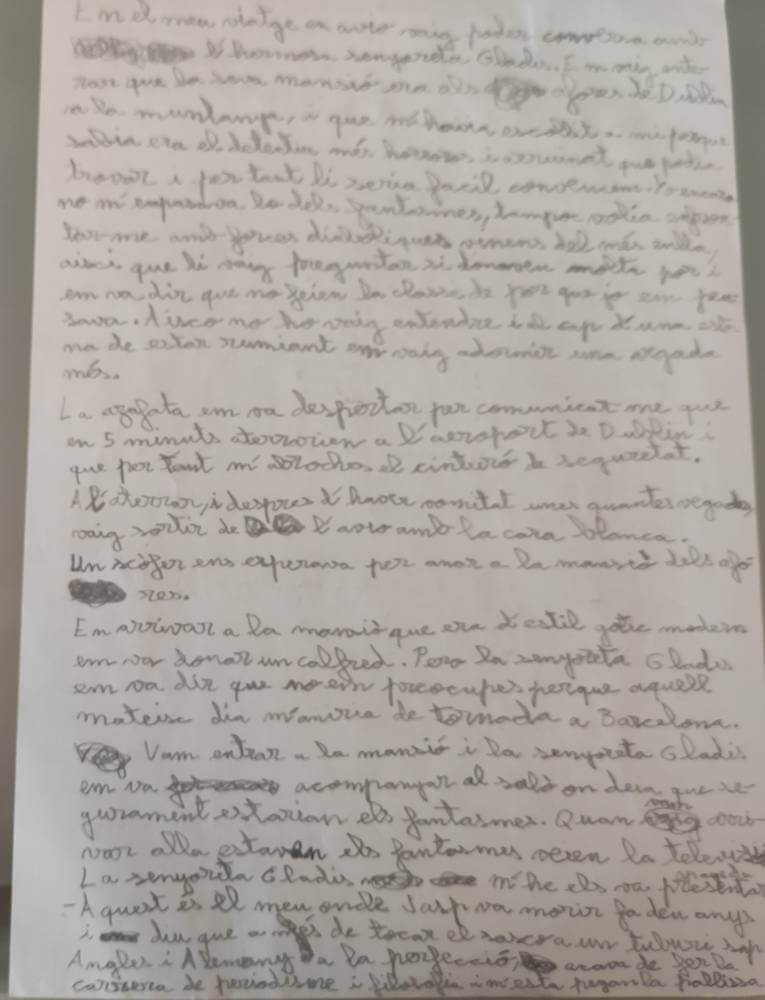 En el meu viatge en avio vaig poder conversa amb
l'hermosa senyoreta Gladis. Em vaig ente-
rar que la seva mansió era als afores de Dublin
a la muntanya, i que m'havia escollit a mi perque
sabia era el detectiu més horroros i arruinat que podia
trovar i per tant li seria facil convencem. Yo encara
no m'empasava lo dels fantasmes, tampoc volia enfron-
tar-me amb forces diaboliques venens del més enlla,
aixi que li vaig preguntar si donaven molta por i
em va dir que no feien la classe de por que jo em pen-
sava. Aixo no ho vaig entendre i al cap d'una esto-
na de estar rumiant em vaig adormir una vegada
més.
La azafata em va despertar per comunicar-me que
en 5 minuts aterrorien a l'aeroport de Dublin i
que per tant m'abroches el cinturó de seguretat.
Al aterrar, i despres d'haver vomitat unes quantes vegades,
vaig sortir de l'avio amb la cara blanca.
Un scofer ens esperava per anar a la mansiò dels afo-
res.
En arrivar a la mansiò que era d'estil gotic modern
em va donar un calfred. Pero la senyoreta Gladis
em va dir que no em preocupes perque aquell
mateix dia m'aniria de tornada a Barcelona.
Vam entrar a la mansió i la senyoreta Gladis
em va acompanyar al saló on deia que se-
gurament estarian els fantasmes. Quan vam arri-
var alla estaven els fantasmes veien la televisió
La senyoreta Gladis m'he els va presentar
- Aquest és el meu oncle Jasp va morir fa deu anys
i diu que a més de tocar el saxo a un tuburi sap
Angles i Alemany a la perfecció, acava de fer la
carrera de periodisme i filosofia i m'esta pegan la pallissa